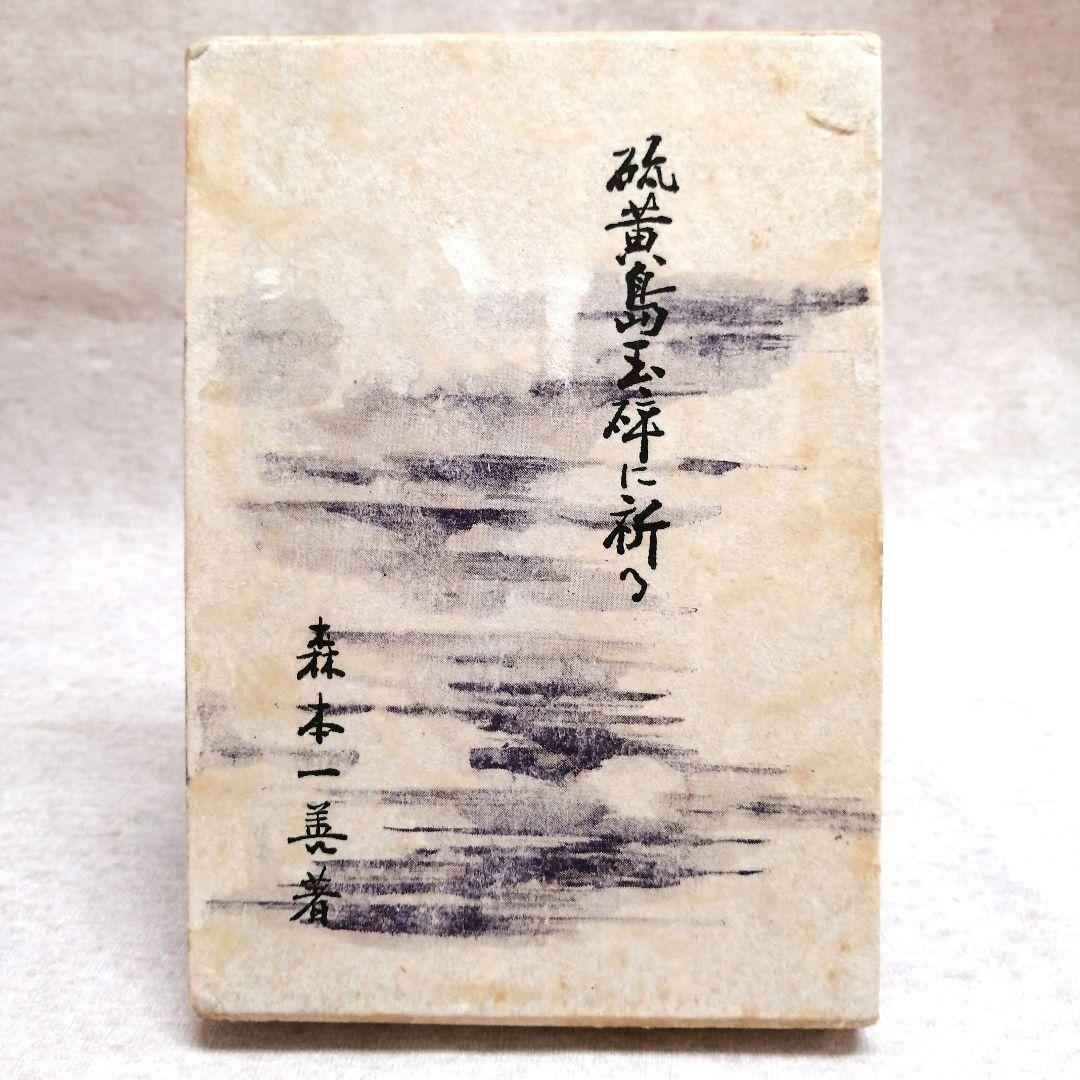 硫黄島玉砕に祈る
森本一善著